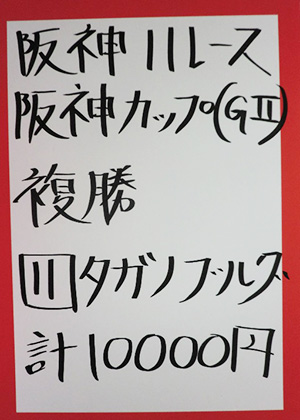 阪神11レース
阪神カップ(GⅡ)
複勝
11タガノブルグ
計10000円